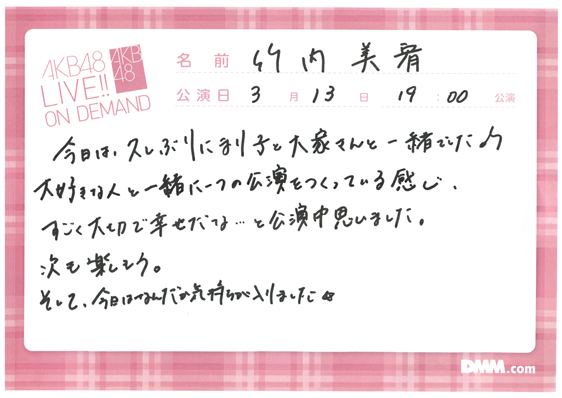 AKB48
LIVE!!
ON DEMAND
AKB
48
名前 竹内美宥
公演日 3月13日 19:00 公演
今日は、久しぶりにまり子と大家さんと一緒でした♪
大好きな人と一緒に一つの公演をつくっている感じ、
すごく大切で幸せだな…と公演中思いました。
次も楽しもう。
そして、今日はなんだか気持ちが入りました☆
DMM.com